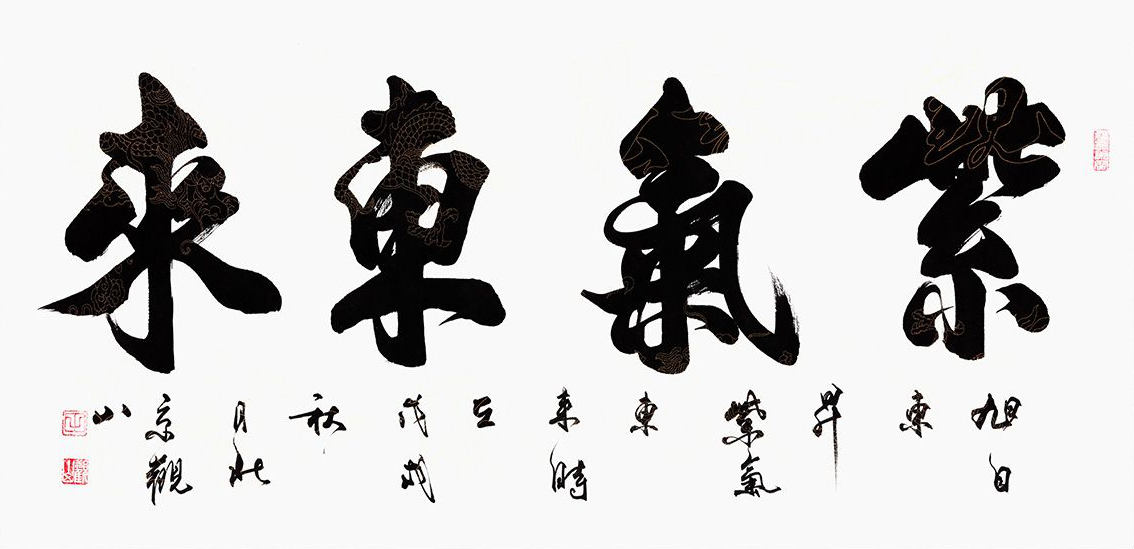 紫氣東來
旭日
東
昇
紫氣
東
来時
戊戌
秋
月北
京觀
山